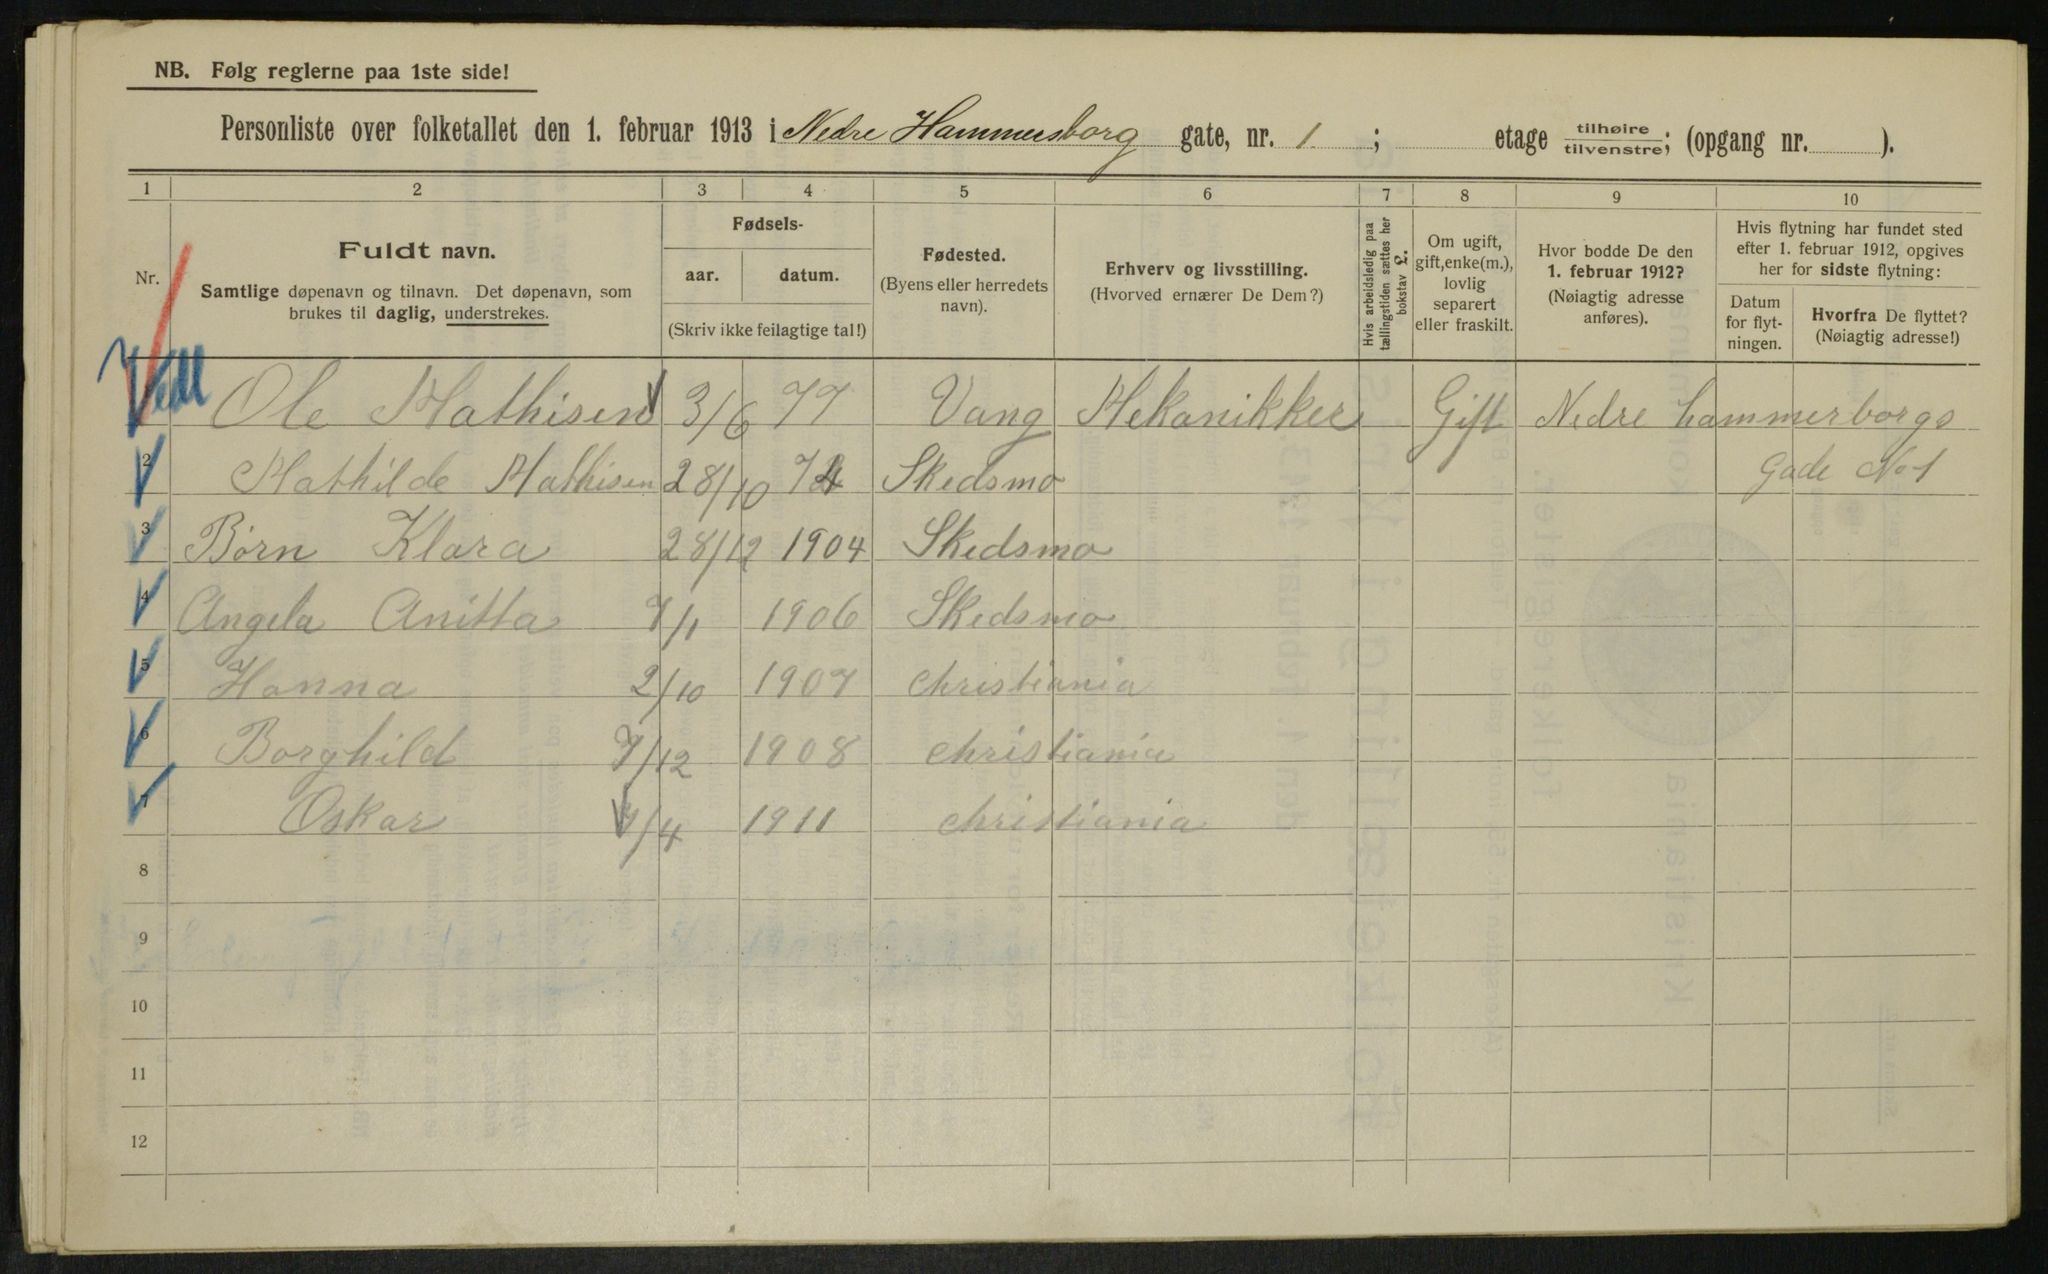 NB. Følg reglerne paa 1ste side!
Personliste over folketallet den 1. februar 1913 i Nedre Hammersborg gate, nr. 1 ; etage tilhøire tilvenstre; (opgang nr. ).
1 2 3 4 5 6 7 8 9 10
Nr.
Fuldt navn.
Samtlige døpenavn og tilnavn. Det døpenavn, som
brukes til daglig, understrekes.
Fødsels-
aar. datum.
(Skriv ikke feilagtige tal!)
Fødested.
(Byens eller herredets
navn).
Erhverv og livsstilling.
(Hvorved ernærer De Dem?)
Hvis arbeidsledig paa
tællingstiden sættes her
bokstav L.
Om ugift,
gift, enke(m.),
lovlig
separert
eller fraskilt.
Hvor bodde De den
1. februar 1912?
(Nøiagtig adresse
anføres).
Hvis flytning har fundet sted
efter 1. februar 1912, opgives
her for sidste flytning:
Datum
for flyt-
ningen.
Hvorfra De flyttet?
(Nøiagtig adresse!)
Ole Mathisen 3/6 77 Vang Mekanikker Gift Nedre hammerborgs
2 Mathilde Mathisen 28/10 Skedsmo Gade No 1
3 Børn Klara 28/12 1904 Skedsmo
4 Angela Anitta 7/1 1906 Skedsmo
5 Hanna 2/10 1907 christiania
6 Borghild 7/12 1908 christiania
7 Oskar 7/4 1911 christiania
8
9
10
11
12